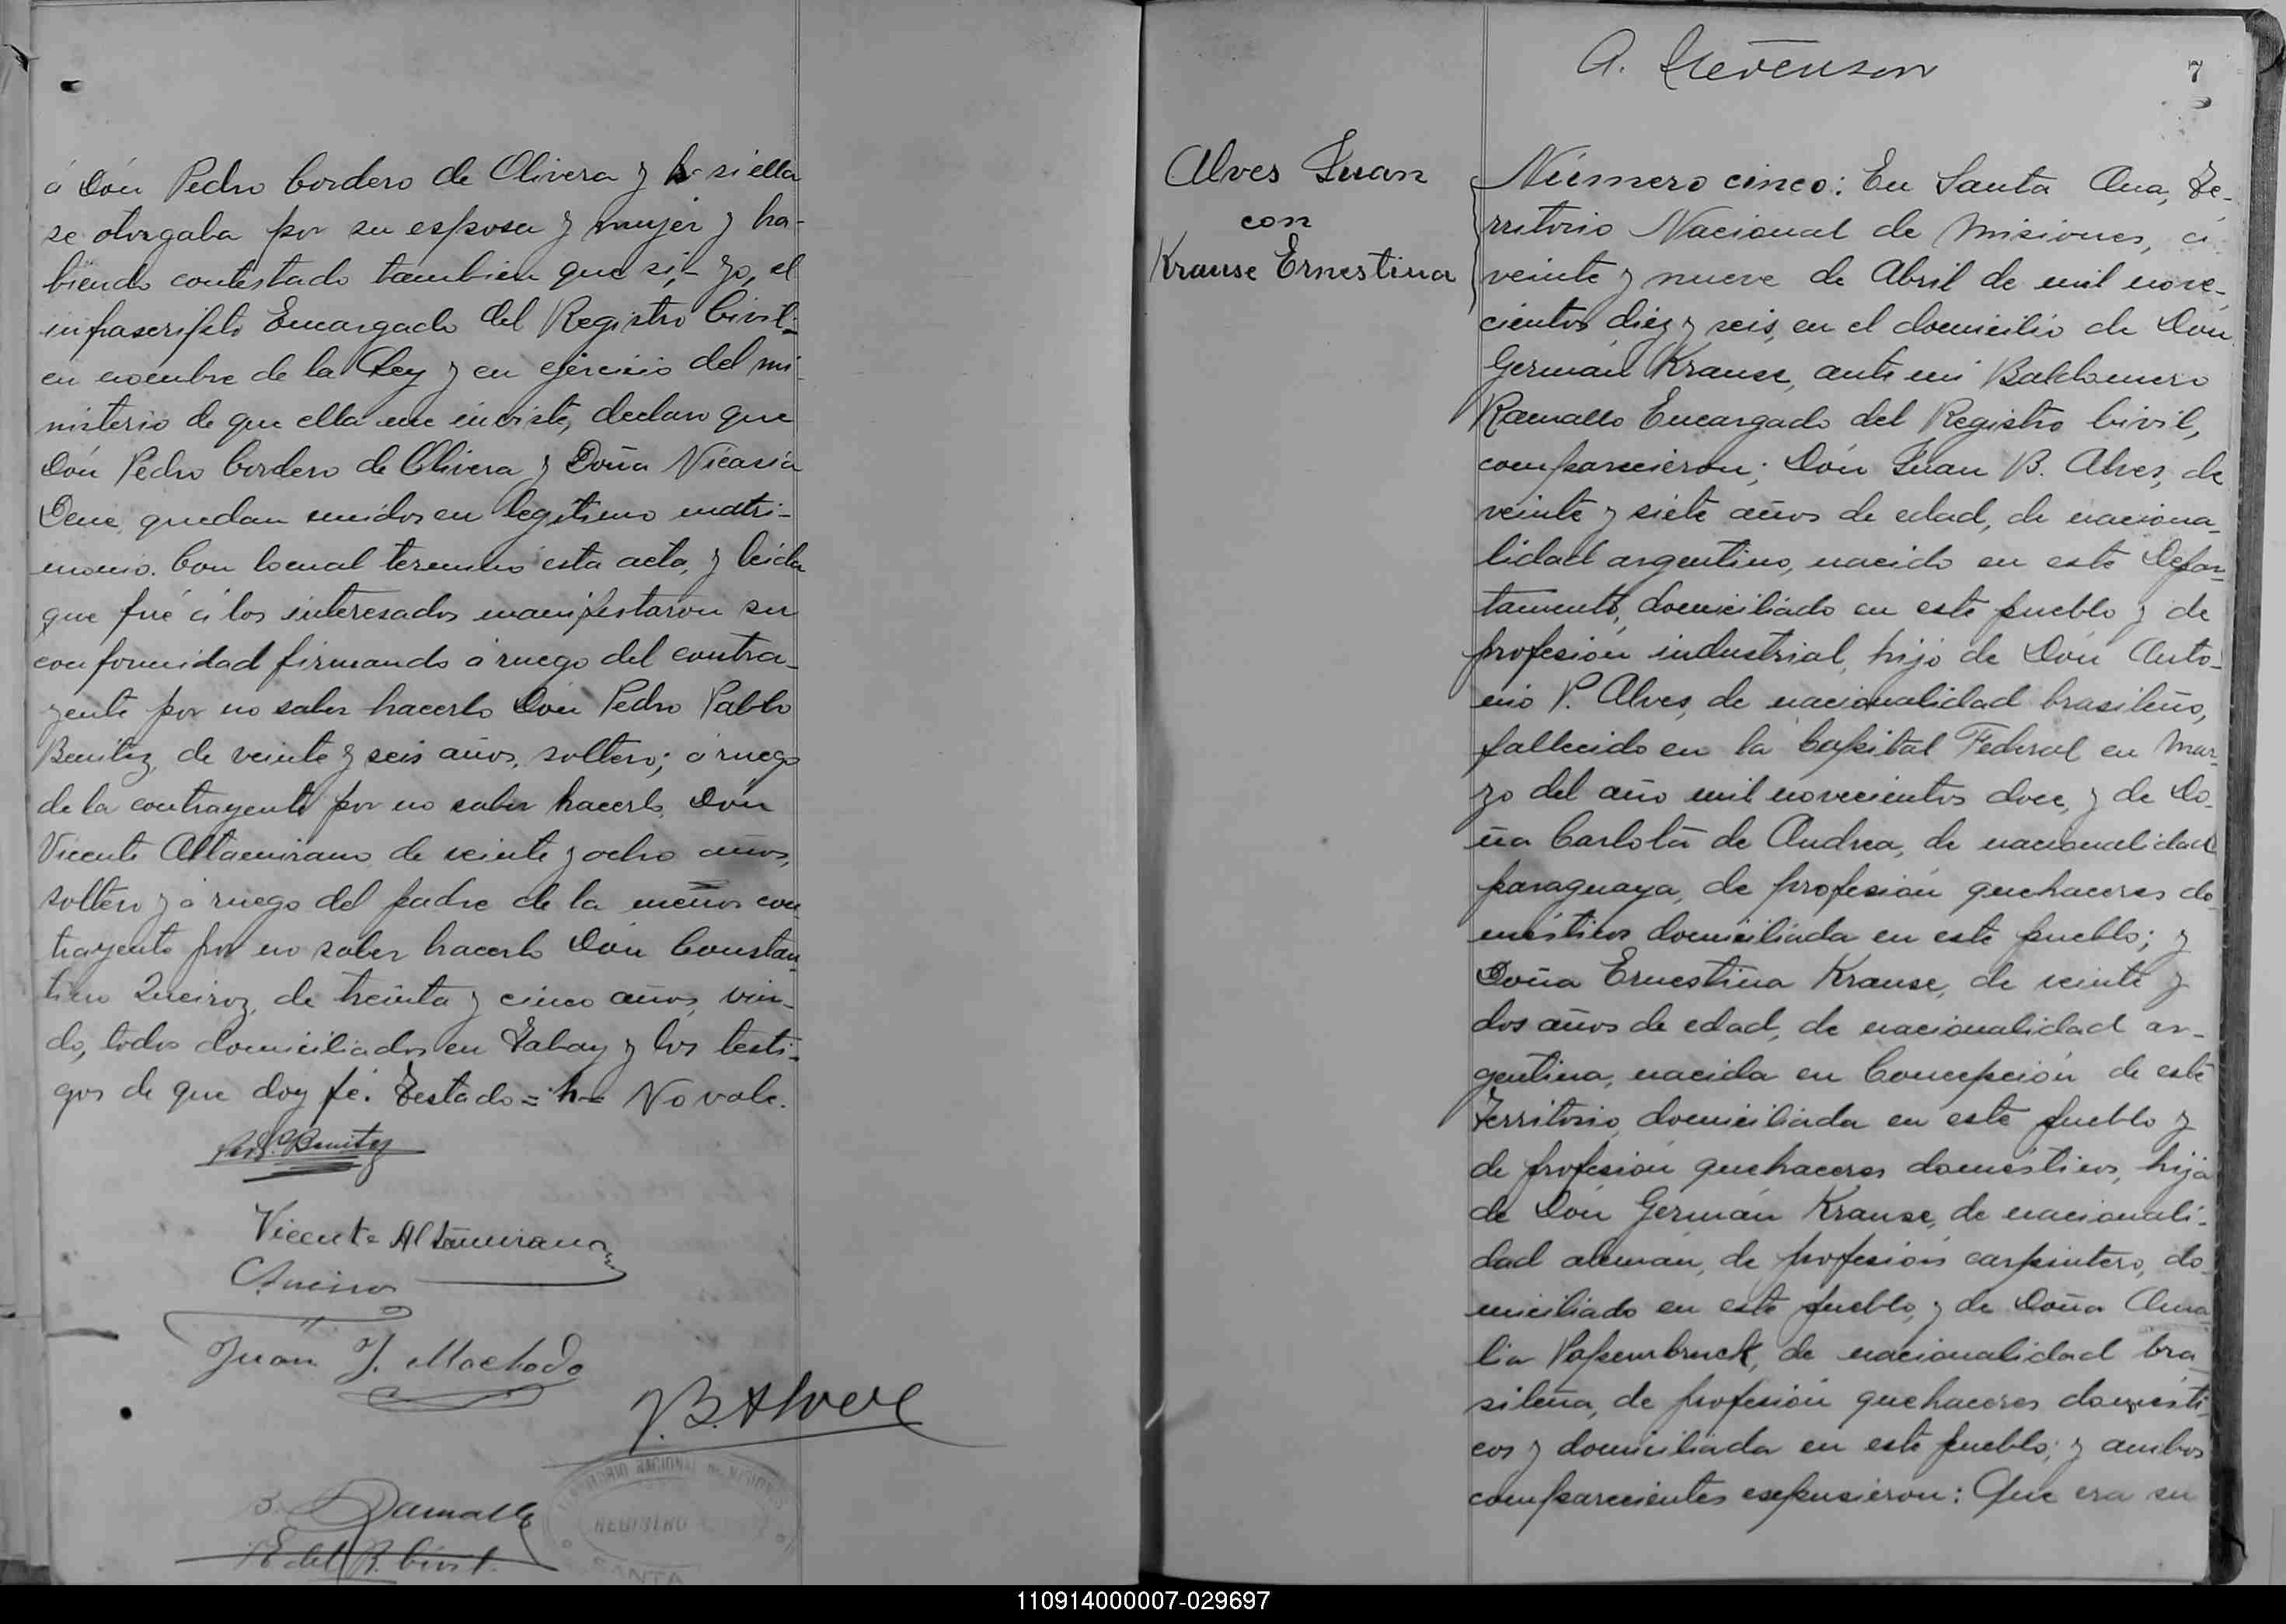 á Dón Pedro Cordero de Olivera y h si ella
se otorgaba por su esposa y mujer y ha-
biendo contestado tambien que sí, yo, el
infrascripto Encargado del Registro Civil-
en nombre de la Ley y en ejercicio del mi-
nisterio de que ella me inviste, declaro que
Dón Pedro Cordero de Olivera y Doña Nicasia
quedan unidos en legítimo matri-
monio. Con lo cual termino esta acta, y leida
que fué á los interesados manifestaron su
conformidad firmando á ruego del contra-
yente por no saber hacerlo Dón Pedro Pablo
Benitez, de veinte y seis años, soltero; á ruego
de la contrayente por no saber hacerlo, Dón
Vicente Altamirano, de veinte y ocho años,
soltero y á ruego del padre de la menor con-
trayente por no saber hacerlo Dón Constan-
tino Queiroz, de treinta y cinco años, viu-
do, todos domiciliados en Yabay y los testi-
gos de que doy fé. Testado = h = No vale.
P. Benitez
Vicente Altamirano
Juan J. Machado
J. B. Alves
B. Ramallo
E. del R. Civil.
TERRITORIO NACIONAL DE MISIONES
REGISTRO
SANTA
A. Stevenson
7
Alves Juan
con
Krause Ernestina
Número cinco: En Santa Ana, Te-
rritorio Nacional de Misiones, á
veinte y nueve de Abril de mil nove-
cientos diez y seis, en el domicilio de Don
Germán Krause, ante mi Baldomero
Ramallo Encargado del Registro Civil,
comparecieron; Dón Juan B. Alves, de
veinte y siete años de edad, de naciona-
lidad argentino, nacido en este Depar-
tamento, domiciliado en este pueblo y de
profesión industrial, hijo de Dón Anto-
nio P. Alves, de nacionalidad brasileño,
fallecido en la Capital Federal en Mar-
zo del año mil novecientos doce, y de Do-
ña Carlota de Andrea, de nacionalidad
paraguaya, de profesión quehaceres do-
mésticos domiciliada en este pueblo; y
Doña Ernestina Krause, de veinte y
dos años de edad, de nacionalidad ar-
gentina, nacida en Concepción de este
Territorio, domiciliada en este pueblo y
de profesión quehaceres domésticos, hija
de Dón Germán Krause, de nacionali-
dad alemán, de profesión carpintero, do-
miciliado en este pueblo, y de Doña Ama-
lia Papembruck, de nacionalidad bra-
sileña, de profesión quehaceres domésti-
cos y domiciliada en este pueblo; y ambos
comparecientes expusieron: Que era su
110914000007-029697